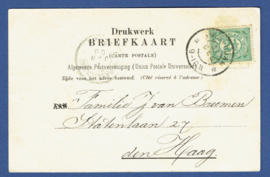 Drukwerk
BRIEFKAART
(CARTE POSTALE)
Algemeene Postvereeniging (Union Postale Universelle)
Zijde voor het adres bestemd. (Côté réservé à l'adresse)
AAN Familie J van Boemen
Statenlaan 27
den Haag